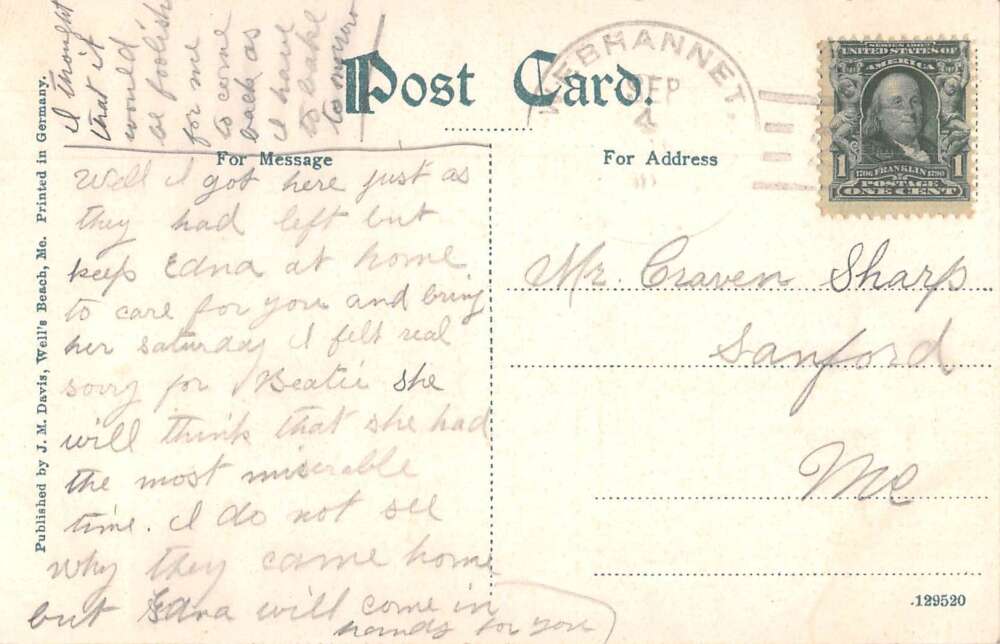 Post Card.
For Message
For Address
WEBHANNET.
SEP
4
SERIES 1902
UNITED STATES OF
AMERICA
1 1
1706 FRANKLIN 1790
POSTAGE
ONE CENT
Well I got here just as
they had left but
keep Edna at home
to care for you and bring
her saturday I felt real
sorry for Beatie she
will think that she had
the most miserable
time. I do not see
why they came home
but Edna will come in
handy for you
I thought
that it
would
be foolish
for me
to come
back as
I have
to bake
tomorrow
Mr. Craven Sharp
Sanford
Me
Published by J. M. Davis, Well's Beach, Me. Printed in Germany.
129520